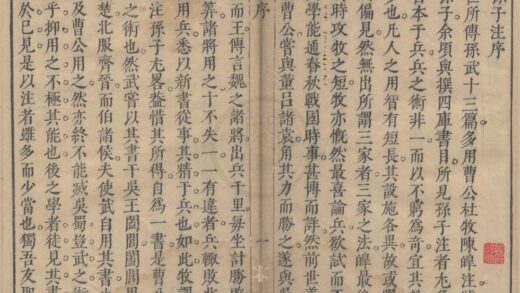 孫子注序
世所傳孫武十三篇多用曹公杜牧陳皡注
孫子余頃與撰四庫書目所見孫子注者尤
書本于兵兵之術非一而以不窮爲奇宜其
多也凡人之用智有短長其設施各異故或
偏見然無出所謂三家者三家之注皡最後
時攻牧之短牧亦慨然最喜論兵欲試而
學能通春秋戰國時事甚博而詳然前世
曹公嘗與董呂諸袁角其力而勝之遂與
序 一
而王傳言魏之諸將出兵千里每坐計勝
算諸將用之十不失一一有違者兵輒敗
用兵悉以新書從事其精于兵也如此牧
注孫子尤畧蓋惜其所得自爲一書是曹
之術也然武嘗以其書干吳王闔閭闔閭用
楚北服齊晉而伯諸侯夫使武自用其書
及曹公用之然亦終不能滅吳蜀豈武之術
乎抑用之不極其能也後之學者徒見其書
於己見是以注者雖多而少當也獨吾友聖